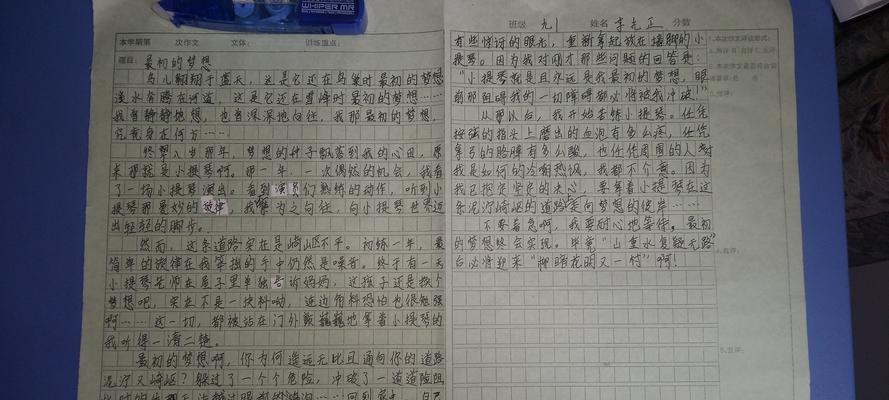 WHIPER MR
本学期第 次作文 文体： 训练重点：
题目：最初的梦想
鸟儿翱翔于蓝天，这是它还在鸟巢时最初的梦想
溪水奔腾在河道，这是它还在雪峰时最初的梦想……
我曾静静地想，也曾深深地向往，我那最初的梦想，
究竟身在何方……
终究八岁那年，梦想的种子飘落到我的心田，原
来那就是小提琴啊。那一年，一次偶然的机会，我看
了一场小提琴演出。看到演员们熟练的动作，听到小
提琴那曼妙的旋律，我为之向往，向小提琴世界迈
出轻轻的脚步。
然而，这条道路实在是崎岖不平。初练一年，最
简单的旋律在我笨拙的手中仍然是噪音。终于有一天
小提琴老师在屋子里单独告诉妈妈，这孩子还是换个
梦想吧，实在不是一块料呦，连边角料恐怕也很勉强
啊……这一切，都被站在门外颤巍巍地拿着小提琴的
我听得一清二楚。
最初的梦想啊，你为何遥远无比且通向你的道路
泥泞又崎岖？躲过了一个个危险，冲破了一道道险阻
班级 九1 姓名 李 正 分数
有些惊讶的眼光，重新拿起放在墙脚的小
提琴。因为我对刚才那些问题的回答是：
“小提琴就是且永远是我最初的梦想，眼
前那阻碍我的一切障碍都必将被我冲破！”
从那以后，我开始苦练小提琴。任凭
按弦的指头上磨出的血泡有多么疼，任凭
拿弓的胳膊有多么酸，也任凭周围的人对
我是如何的冷嘲热讽，我都不介意。因为
我已抱定坚定的决心，要拿着小提琴在这
条泥泞崎岖的道路走向梦想的彼岸……
不要着急啊，我要耐心地等待。最初
的梦想终会实现。毕竟“山重水复疑无路”
后必将迎来“柳暗花明又一村”啊！